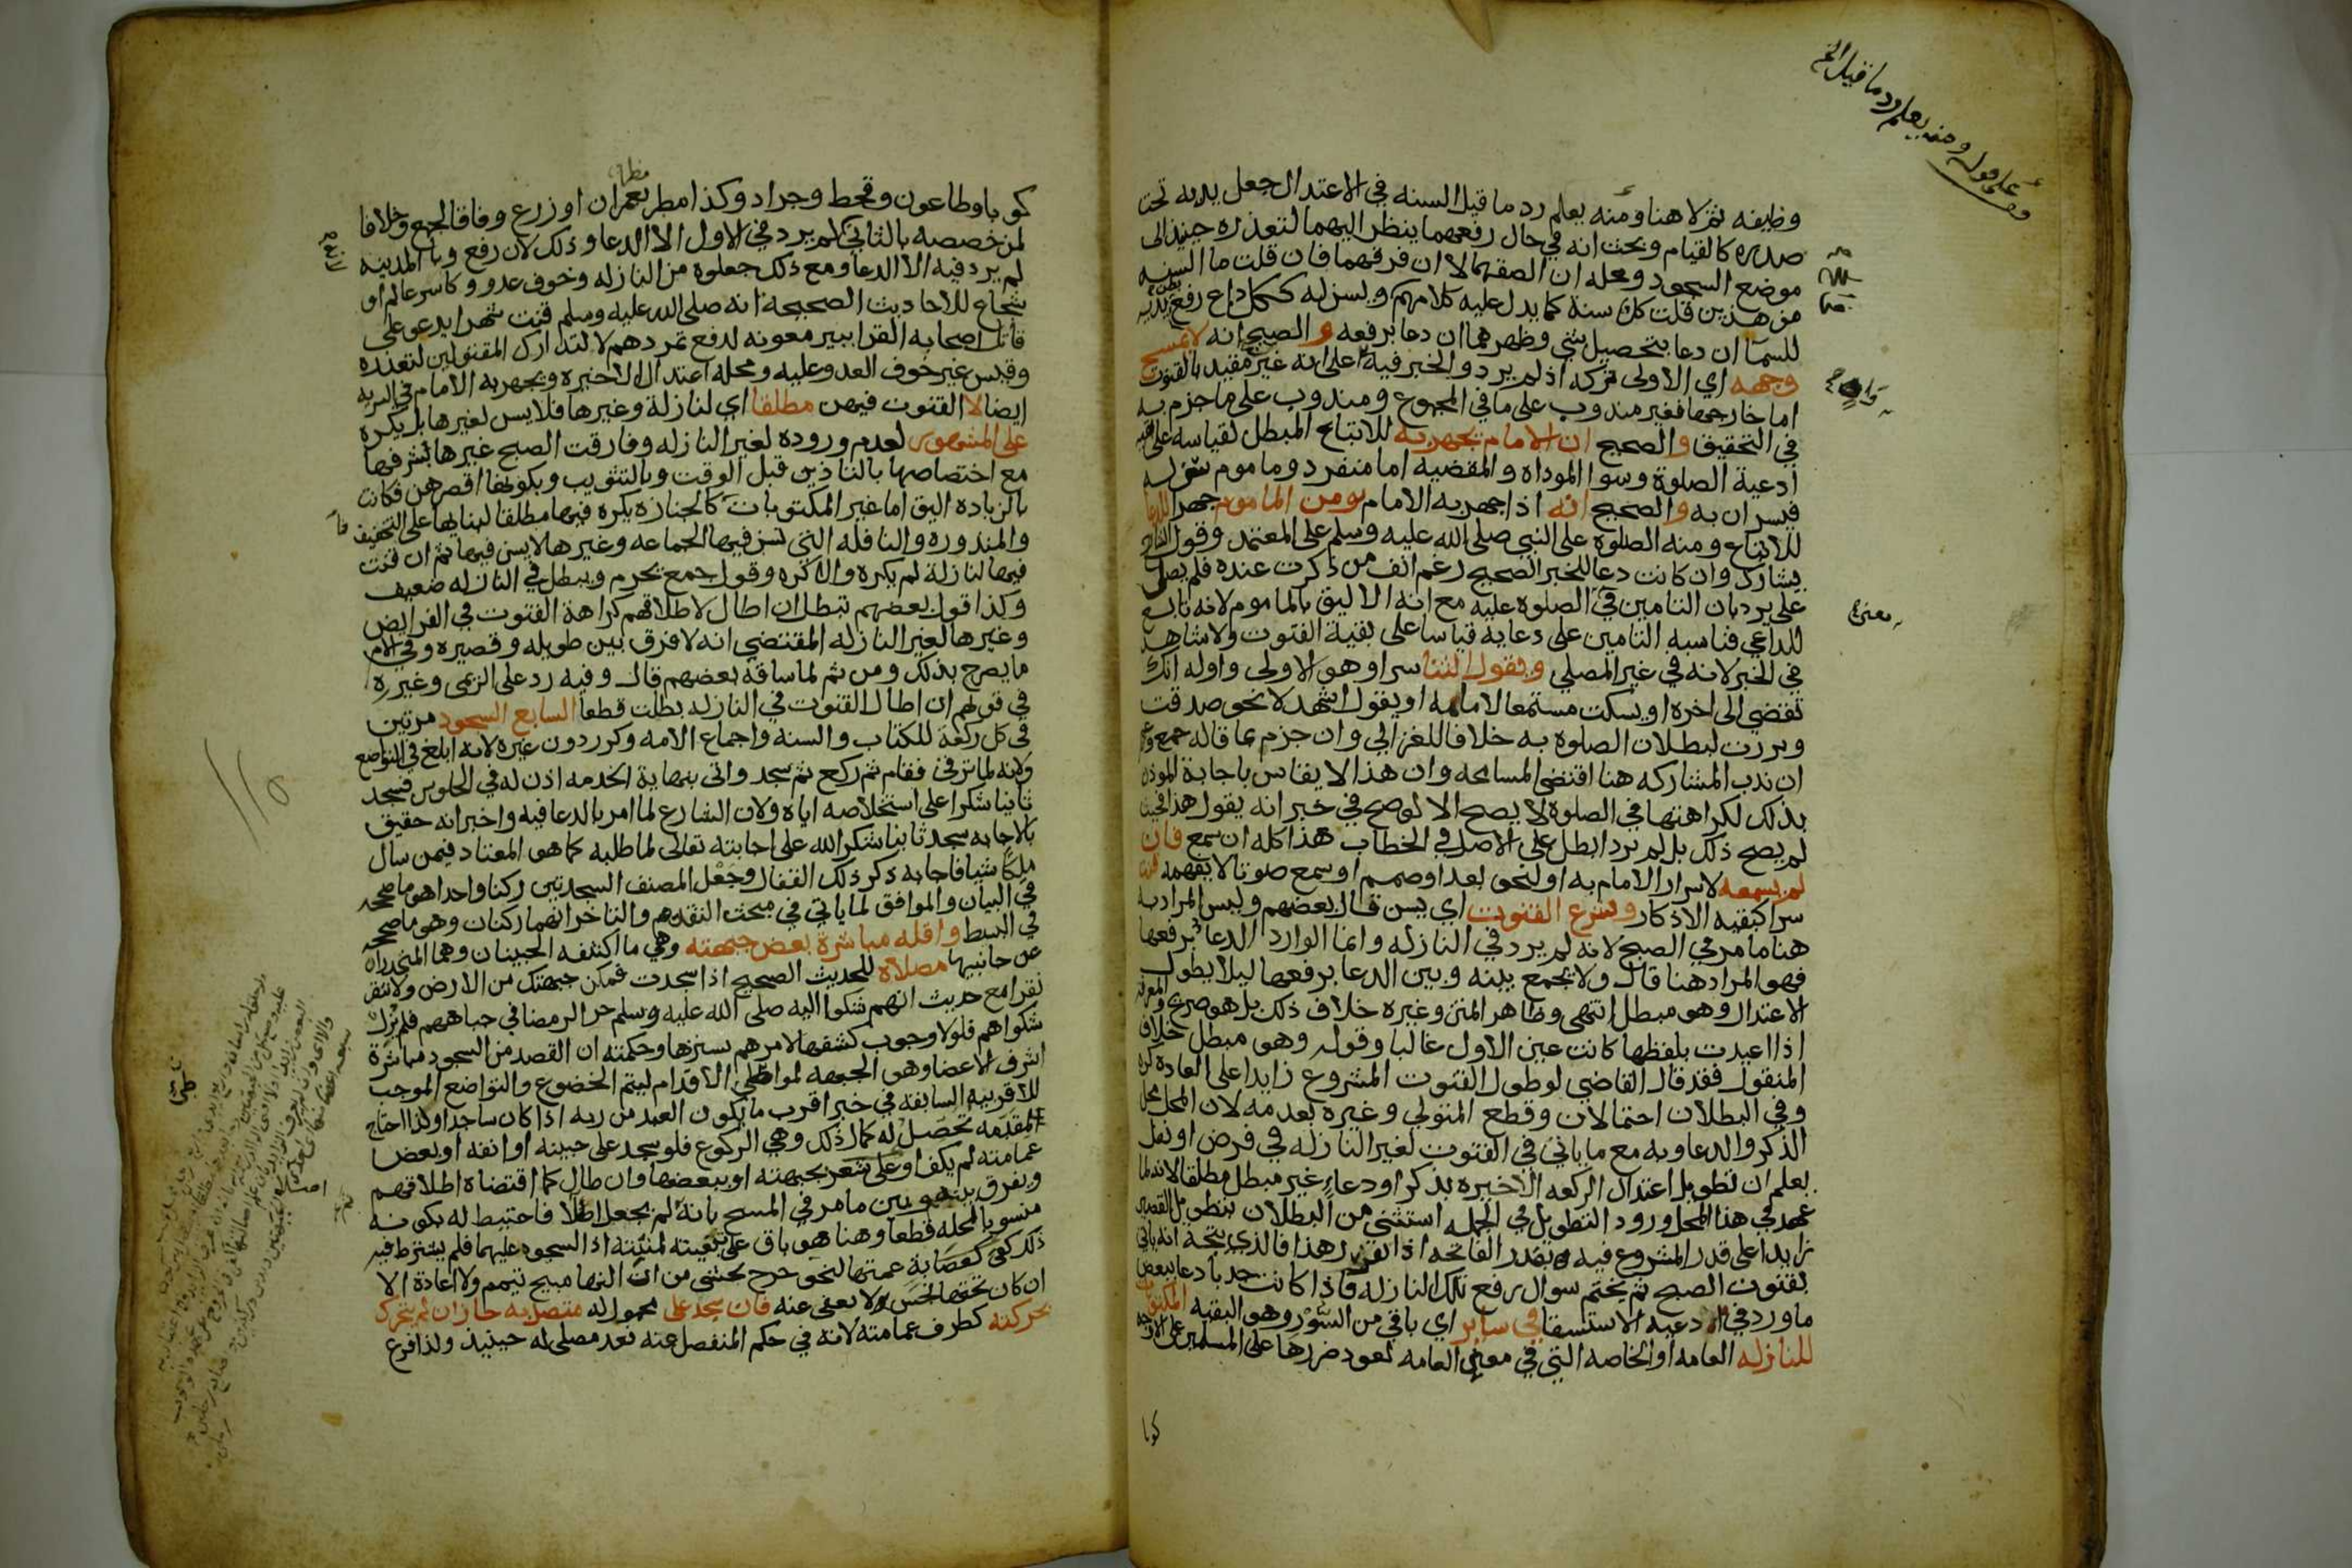 وظيفه ثم لا هنا ومنه يعلم رد ما قيل السنه في الاعتدال جعل يديه تحت
صدره كالقيام وبحث انه في حال رفعهما ينظر اليهما لتعذره حينئذ الى
موضع السجود ومحله ان الصقهما لا ان فرقهما فان قلت ما السنه
من هذين قلت كل سنة كما يدل عليه كلامهم ويسن له ككل داع رفع بطن يديه
للسما ان دعا بتحصيل شي وظهرهما ان دعا برفعه و الصحيح انه لا يمسح
وجهه اي الاولى تركه اذ لم يرد والخبر فيه على انه غير مقيد بالقنوت
اما خارجها فغير مندوب على ما في المجموع ومندوب على ما جزم به
في التحقيق والصحيح ان الامام يجهر به للاتباع المبطل لقياسه على بقيه
ادعية الصلوة وسوا الموداه والمقضيه اما منفرد وماموم سن له
فيسران به والصحيح انه اذا جهر به الامام يومن الماموم جهرا للدعا
للاتباع ومنه الصلوة على النبي صلى الله عليه وسلم على المعتمد وقول الشارح
يشارك وان كانت دعا للخبر الصحيح رغم انف من ذكرت عنده فلم يصل
علي يرد بان التامين في الصلوة عليه مع انه الاليق بالماموم لانه تابع
للداعي فناسبه التامين على دعايه قياسا على بقية القنوت ولا شاهد
في الخبر لانه في غير المصلي ويقول الثنا سرا وهو الاولى واوله انك
تقضي الى اخره او يسكت مستمعا لامامه او يقول اشهد لا نحو صدقت
وبررت لبطلان الصلوة به خلافا للغزالي وان جزم بما قاله جمع وزعم
ان ندب المشاركه هنا اقتضى المسامحه وان هذا لا يقاس باجابة الموذن
بذلك لكراهتها في الصلوة لا يصح الا لو صح في خبر انه يقول هذا فحيث
لم يصح ذلك بل لم يرد ابطل على الاصل في الخطاب هذا كله ان سمع فان
لم يسمعه لاسرار الامام به او لنحو بعد او صمم او سمع صوتا لا يفهمه قنت
سرا كبقيه الاذكار ويشرع القنوت اي يسن قال بعضهم وليس المراد به
هنا ما مر في الصبح لانه لم يرد في النازله وانما الوارد الدعا برفعها
فهو المراد هنا قال ولا يجمع بينه وبين الدعا برفعها ليلا يطول
الاعتدال وهو مبطل انتهى وظاهر المتن وغيره خلاف ذلك بل هو صريح والمعرفه
اذا اعيدت بلفظها كانت عين الاول غالبا وقوله وهو مبطل خلاف
المنقول فقد قال القاضي لو طول القنوت المشروع زايدا على العاده كره
وفي البطلان احتمالان وقطع المتولي وغيره بعدمه لان المحل محل
الذكر والدعا وبه مع ما ياتي في القنوت لغير النازله في فرض او نفل
يعلم ان تطويل اعتدال الركعه الاخيره بذكر او دعاء غير مبطل مطلقا لانه لما
عهد في هذا المحل ورود التطويل في الجمله استثني من البطلان بتطويل القصير
زايدا على قدر المشروع فيه بقدر الفاتحه اذا تقرر هذا فالذي يتجه انه ياتي
بقنوت الصبح ثم يختم سوال رفع تلك النازله فاذا كانت جدبا دعا ببعض
ما ورد في ادعيه الاستسقا في ساير اي باقي من السؤر وهو البقيه المكتوبات
للنازله العامه او الخاصه التي في معنى العامه لعود ضررها على المسلمين على الاوجه
كوبا
على قوله ومنه يعلم رد ما قيل الخ
كوبا وطاعون وقحط وجراد وكذا مطر يعمران او زرع وفاقا لجمع وخلافا
لمن خصصه بالثاني لم يرد في الاول الا الدعا وذلك لان رفع وبا المدينه
لم يرد فيه الا الدعا ومع ذلك جعلوه من النازله وخوف عدو وكاسر عالم او
شجاع للاحاديث الصحيحة انه صلى الله عليه وسلم قنت شهرا يدعو على
قاتلي اصحابه القرا ببير معونه لدفع تمردهم لا لتدارك المقتولين لتعذره
وقيس غير خوف العدو عليه ومحله اعتدال الاخيره ويجهر به الامام في السريه
ايضا لا القنوت فيهن مطلقا اي لنازلة وغيرها فلا يسن لغيرها بل يكره
على المشهور لعدم وروده لغير النازله وفارقت الصبح غيرها بشرفها
مع اختصاصها بالتاذين قبل الوقت وبالتثويب وبكونها اقصرهن فكانت
بالزياده اليق اما غير المكتوبات كالجنازه يكره فيها مطلقا لبنايها على التخفيف
والمنذوره والنافله التي تسن فيها الجماعه وغيرها لا يسن فيها ثم ان قنت
فيها لنازلة لم يكره والا كره وقول جمع يحرم ويبطل في النازله ضعيف
وكذا قول بعضهم تبطل ان اطال لاطلاقهم كراهة القنوت في الفرايض
وغيرها لغير النازله المقتضي انه لا فرق بين طويله وقصيره وفي الام
ما يصرح بذلك ومن ثم لما ساقه بعضهم قال وفيه رد على الريمي وغيره
في قولهم ان اطال القنوت في النازله بطلت قطعا السابع السجود مرتين
في كل ركعة للكتاب والسنه واجماع الامه وكرر دون غيره لانه ابلغ في التواضع
ولانه لما ترقى فقام ثم ركع ثم سجد واتى بنهاية الخدمه اذن له في الجلوس فسجد
ثانيا شكرا على استخلاصه اياه ولان الشارع لما امر بالدعا فيه واخبر انه حقيق
بالاجابه سجد ثانيا شكرا لله على اجابته تعالى لما طلبه كما هو المعتاد فيمن سال
ملكا شيا فاجابه ذكر ذلك القفال وجعل المصنف السجدتين ركنا واحدا هو ما صححه
في البيان والموافق لما ياتي في مبحث التقدم والتاخر انهما ركنان وهو ما صححه
في البسيط واقله مباشرة بعض جبهته وهي ما اكتنفه الجبينان وهما المنحدران
عن جانبيها مصلاه للحديث الصحيح اذا سجدت فمكن جبهتك من الارض ولا تنقر
نقرا مع حديث انهم شكوا اليه صلى الله عليه وسلم حر الرمضا في جباههم فلم يزل
شكواهم فلولا وجوب كشفها لامرهم بسترها وحكمته ان القصد من السجود مباشرة
اشرف الاعضا وهو الجبهه لمواطي الاقدام ليتم الخضوع والتواضع الموجب
للاقربيه السابقه في خبر اقرب ما يكون العبد من ربه اذا كان ساجدا ولذا احتاج
لمقدمه تحصل له كمال ذلك وهي الركوع فلو سجد على جبينه او انفه او بعض
عمامته لم يكف او على شعر بجبهته او ببعضها وان طال كما اقتضاه اطلاقهم
ويفرق بينه وبين ما مر في المسح بانه لم يجعل اصلا فاحتيط له بكونه
منسوبا لمحله قطعا وهنا هو باق على تبعيته لمنبته اذ السجود عليهما فلم يشترط فيه
ذلك كفى كعصابة عمتها لنحو جرح يخشى من ازالتها مبيح تيمم ولا اعادة الا
ان كان تحتها نجس لا يعفى عنه فان سجد على محمول له متصل به جاز ان لم يتحرك
بحركته كطرف عمامته لانه في حكم المنفصل عنه فعد مصلى له حينيذ ولذا فرع